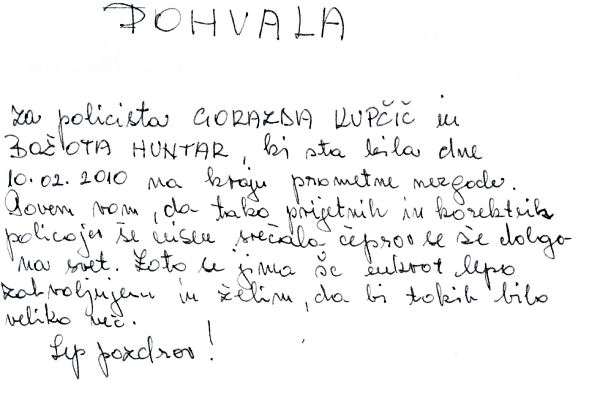 POHVALA
za policista GORAZDA KUPČIČ in
BOŠTJOTA HUNTAR, ki sta bila dne
10.02.2010 na kraju prometne nezgode.
Povem vam, da tako prijetnih in korektnih
policajev še nisem srečala čeprav se še dolgo
na svet. Zato se jima še enkrat lepo
zahvaljujem in želim, da bi takih bilo
veliko več.
Lep pozdrav!